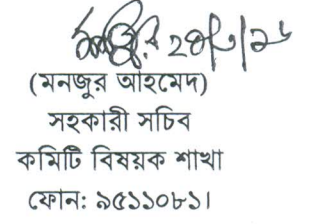 (মনজুর আহমেদ)
সহকারী সচিব
কমিটি বিষয়ক শাখা
ফোন: ৯৫১১০৮১।